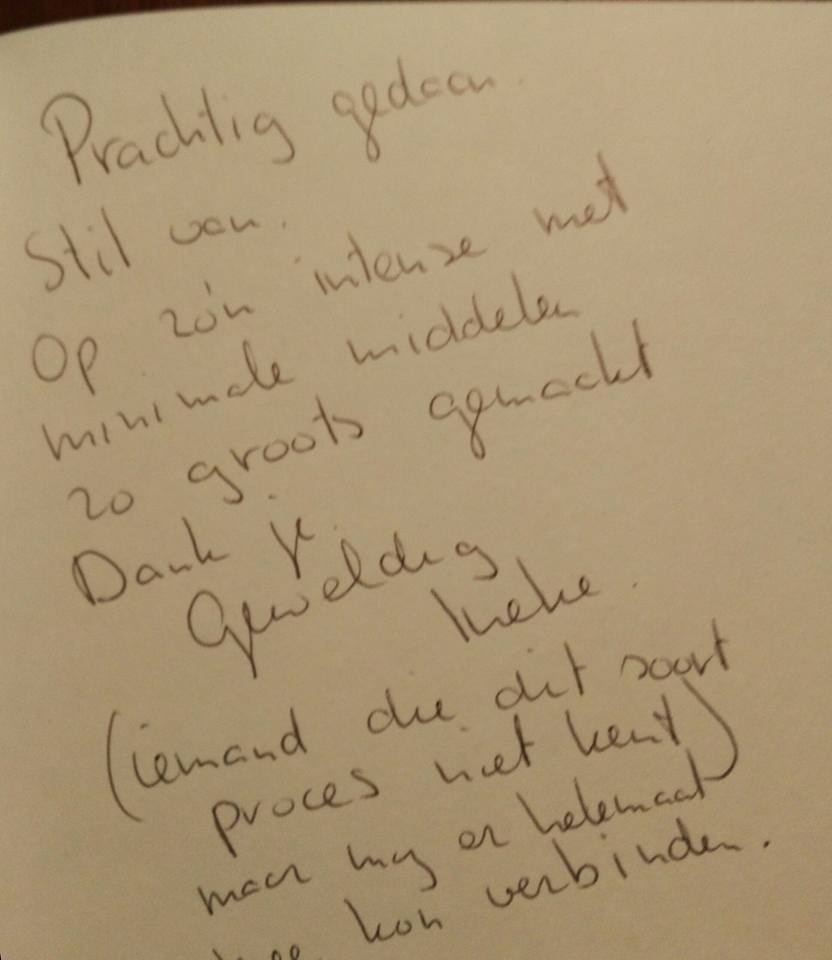 Prachtig gedaan.
Stil van.
Op zó'n intense met
minimale middelen
zo groots gemaakt
Dank je.
Geweldig
(iemand die dit soort
proces niet kent)
maar mij er helemaal
mee kon verbinden.